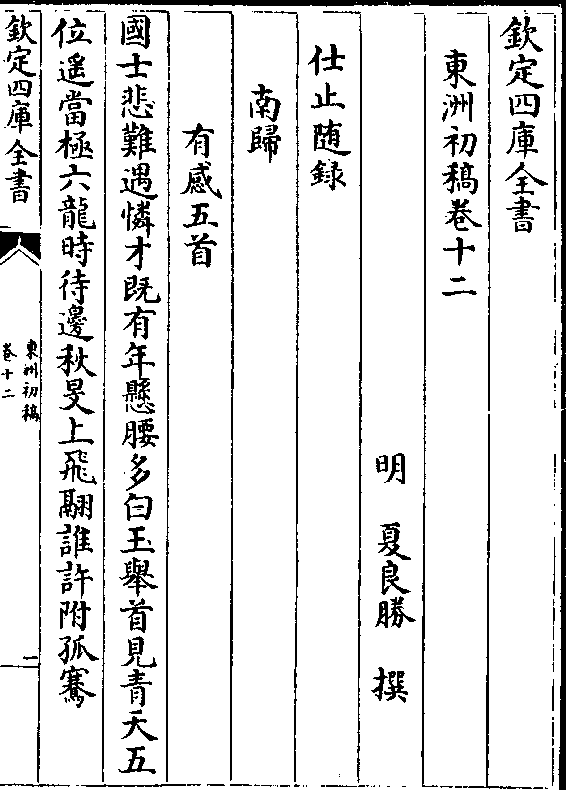 欽定四庫全書
東洲初稿卷十二
明 夏良勝 撰
仕止随録
南歸
有感五首
國士悲難遇憐才既有年懸腰多白玉舉首見青天五
位遙當極六龍時待邊秋旻上飛翮誰許附孤騫
欽定四庫全書
東洲初稿
卷十二
一